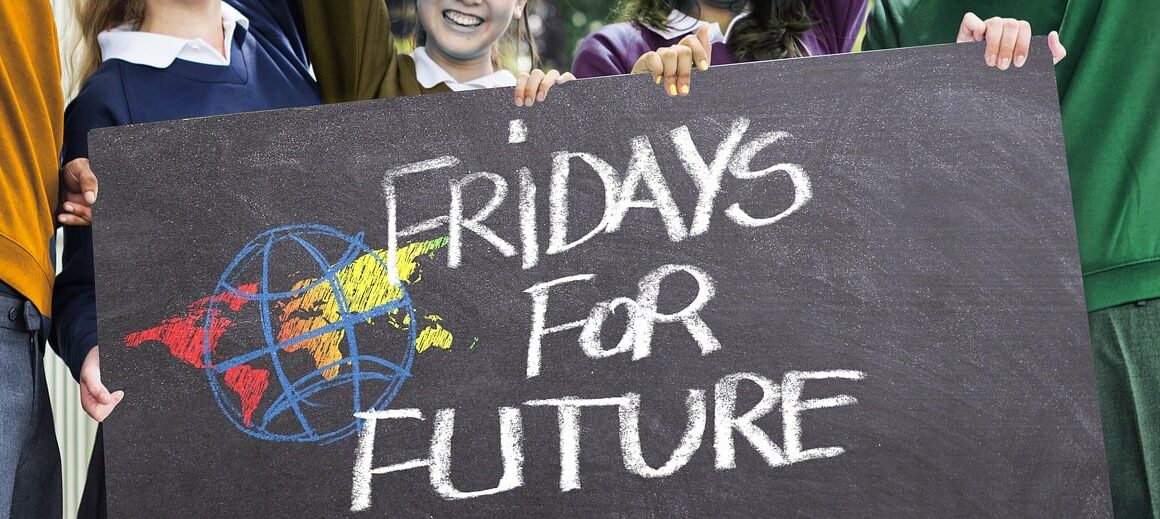 FRiDAYS
FoR
FUTURE